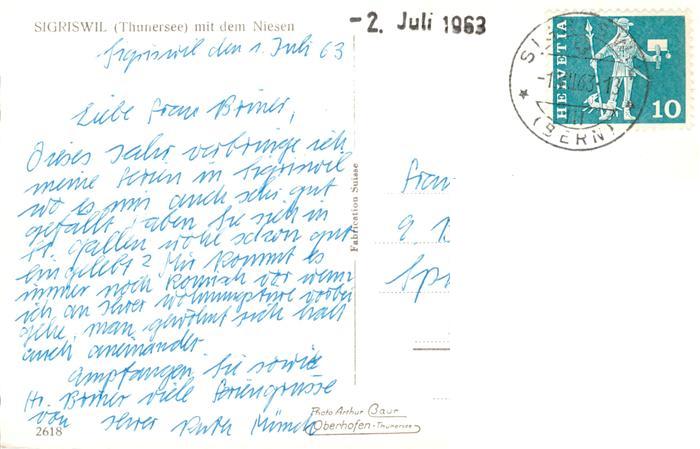 SIGRISWIL (Thunersee) mit dem Niesen
Sigriswil den 1. Juli 63
Liebe Frau Briner,
Dieses Jahr verbringe ich
meine Ferien in Sigriswil
wo es mir auch sehr gut
gefällt, aben Sie sich in
St. Gallen wohl schon gut
eingelebt? Mir kommt es
immer noch komisch vor wenn
ich an Ihrer Wohnungstüre vorbei
gehe, man gewöhnt sich halt
auch aneinander.
Empfangen Sie sowie
Hr. Briner viele Feriengrüsse
von Ihrer Ruth Münch
2618
Fabrication Suisse
Photo Arthur Baur
Oberhofen-Thunersee
-2. Juli 1963
HELVETIA
10
(BERN)
Frau